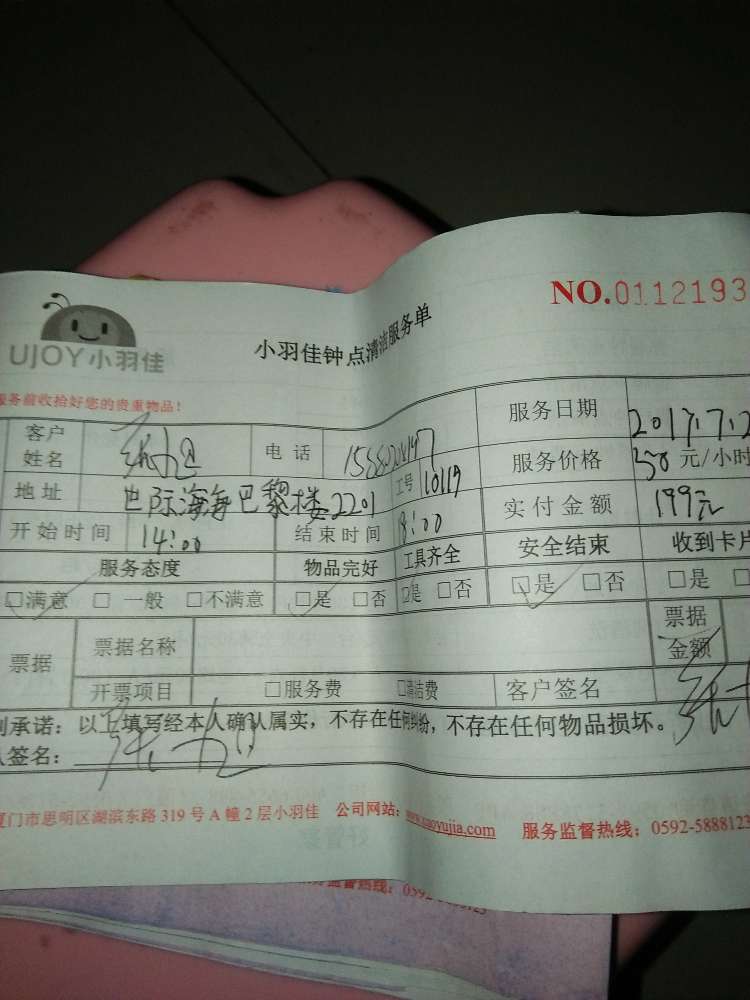 NO.0112193
UJOY小羽佳
小羽佳钟点清洁服务单
服务前收拾好您的贵重物品！
客户姓名 电话 服务日期 2017.7.2
服务价格 元/小时
地址 海 巴黎楼2201 工号 10119 实付金额 199元
开始时间 14:00 结束时间 18:00
服务态度 物品完好 工具齐全 安全结束 收到卡片
□满意 □一般 □不满意 □是 □否 □是 □否 □是 □否 □是
票据 票据名称 票据金额
开票项目 □服务费 □清洁费 客户签名
承诺：以上填写经本人确认属实，不存在任何纠纷，不存在任何物品损坏。
签名：
厦门市思明区湖滨东路319号A幢2层小羽佳 公司网站：www.xiaoyujia.com 服务监督热线：0592-5888123
监督热线：0592